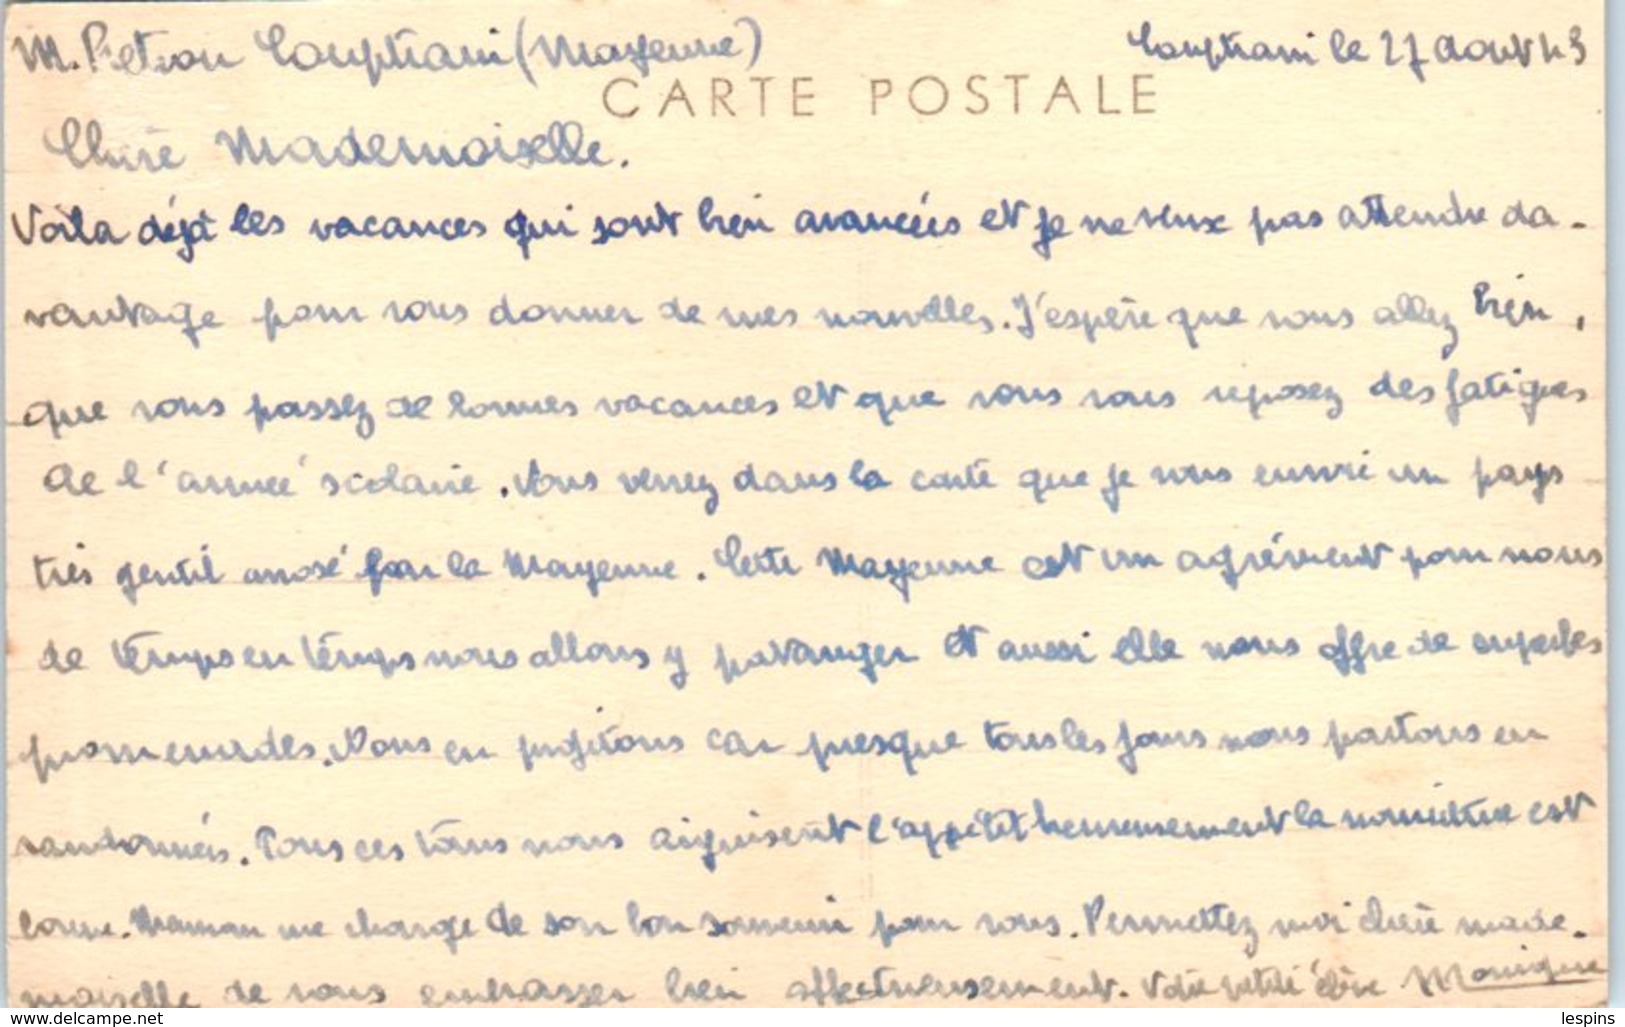 M. Pietron Couptrain (Mayenne)
Couptrain le 27 Août 43
CARTE POSTALE
Chère Mademoiselle.
Voila déjà les vacances qui sont bien avancées et je ne veux pas attendre da-
vantage pour vous donner de mes nouvelles. J'espère que vous allez bien,
que vous passez de bonnes vacances et que vous vous reposez des fatigues
de l'année scolaire. Vous verrez dans la carte que je vous envoie un pays
très gentil arrosé par la Mayenne. Cette Mayenne est un agrément pour nous
de temps en temps nous allons y patauger et aussi elle nous offre de superbes
promenades. Nous en profitons car presque tous les jours nous partons en
randonnées. Tous ces tours nous aiguisent l'appétit heureusement la nourriture est
bonne. Maman me charge de son bon souvenir pour vous. Permettez moi chère made-
moiselle de vous embrasser bien affectueusement. Votre petite élève Monique
www.delcampe.net
lespins